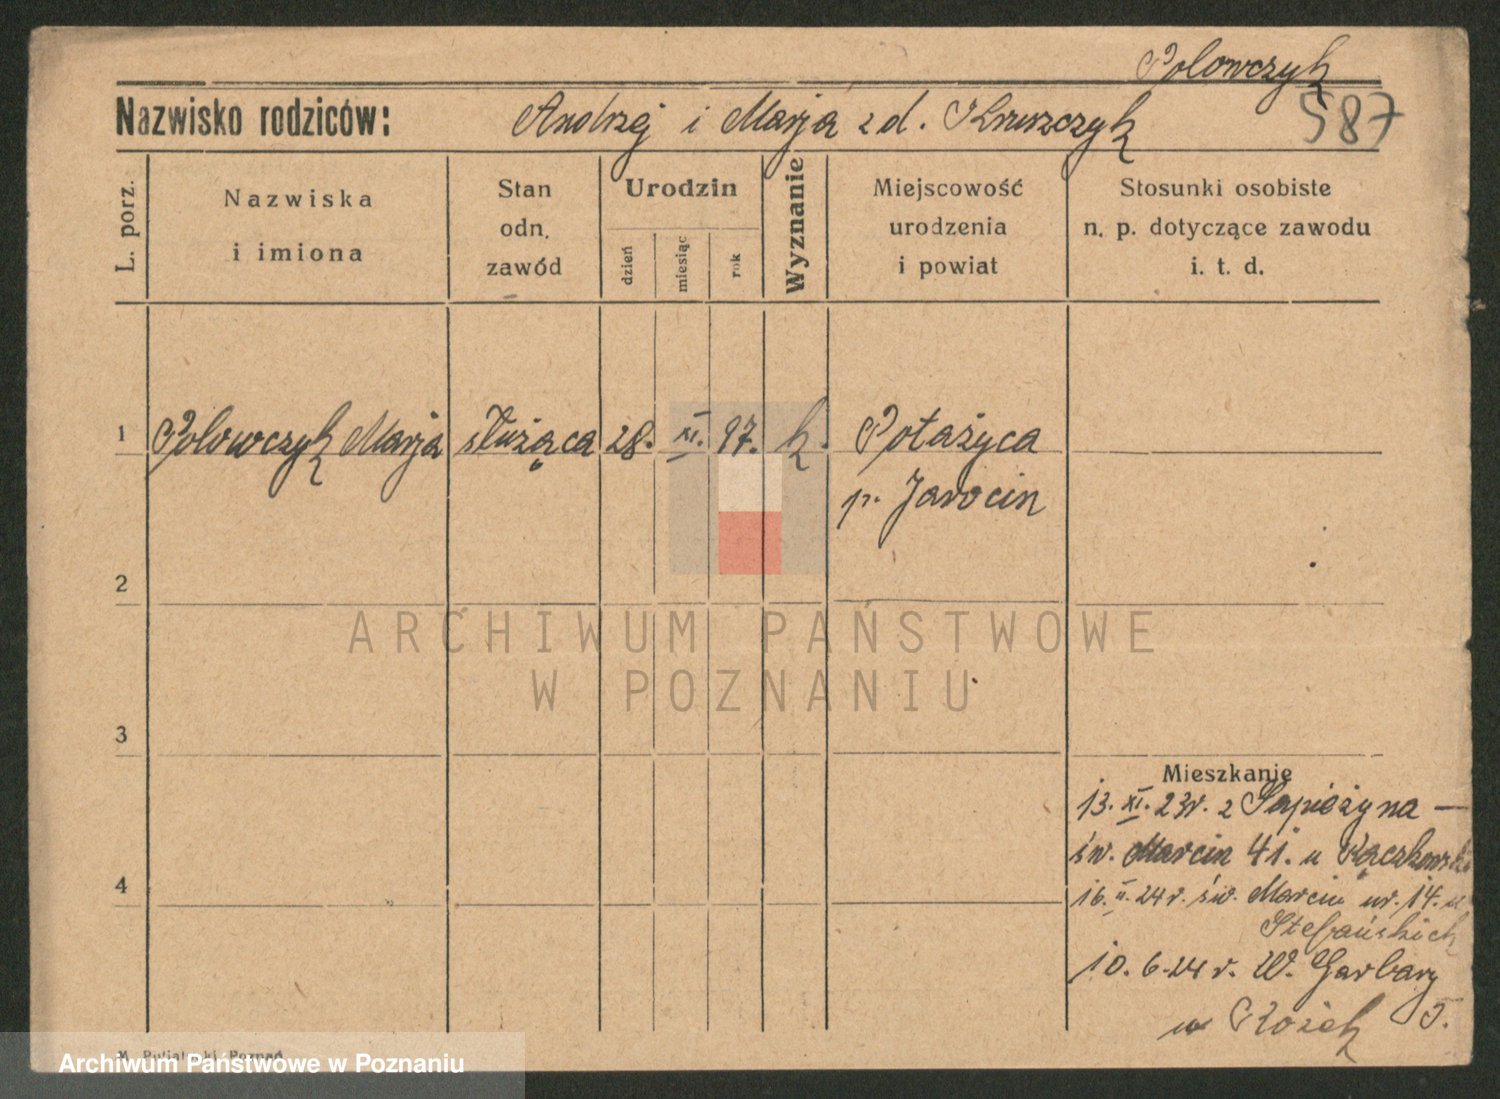 Polowczyk
Nazwisko rodziców: Andrzej i Marja z d. Kruszczyk 587
L. porz.
Nazwiska
i imiona
Stan
odn.
zawód
Urodzin
dzień
miesiąc
rok
Wyznanie
Miejscowość
urodzenia
i powiat
Stosunki osobiste
n. p. dotyczące zawodu
i. t. d.
1 Polowczyk Marja służąca 28. XI. 97. k. Potażyca
p. Jarocin
2
3
4
Mieszkanie
13. XI. 23r. z Sapieżyna —
św. Marcin 41. u
16. II. 24 r. św. Marcin nr. 14. u
Stefańskich
10. 6. 24 r. W. Garbary
5.
ARCHIWUM PAŃSTWOWE
W POZNANIU
Archiwum Państwowe w Poznaniu